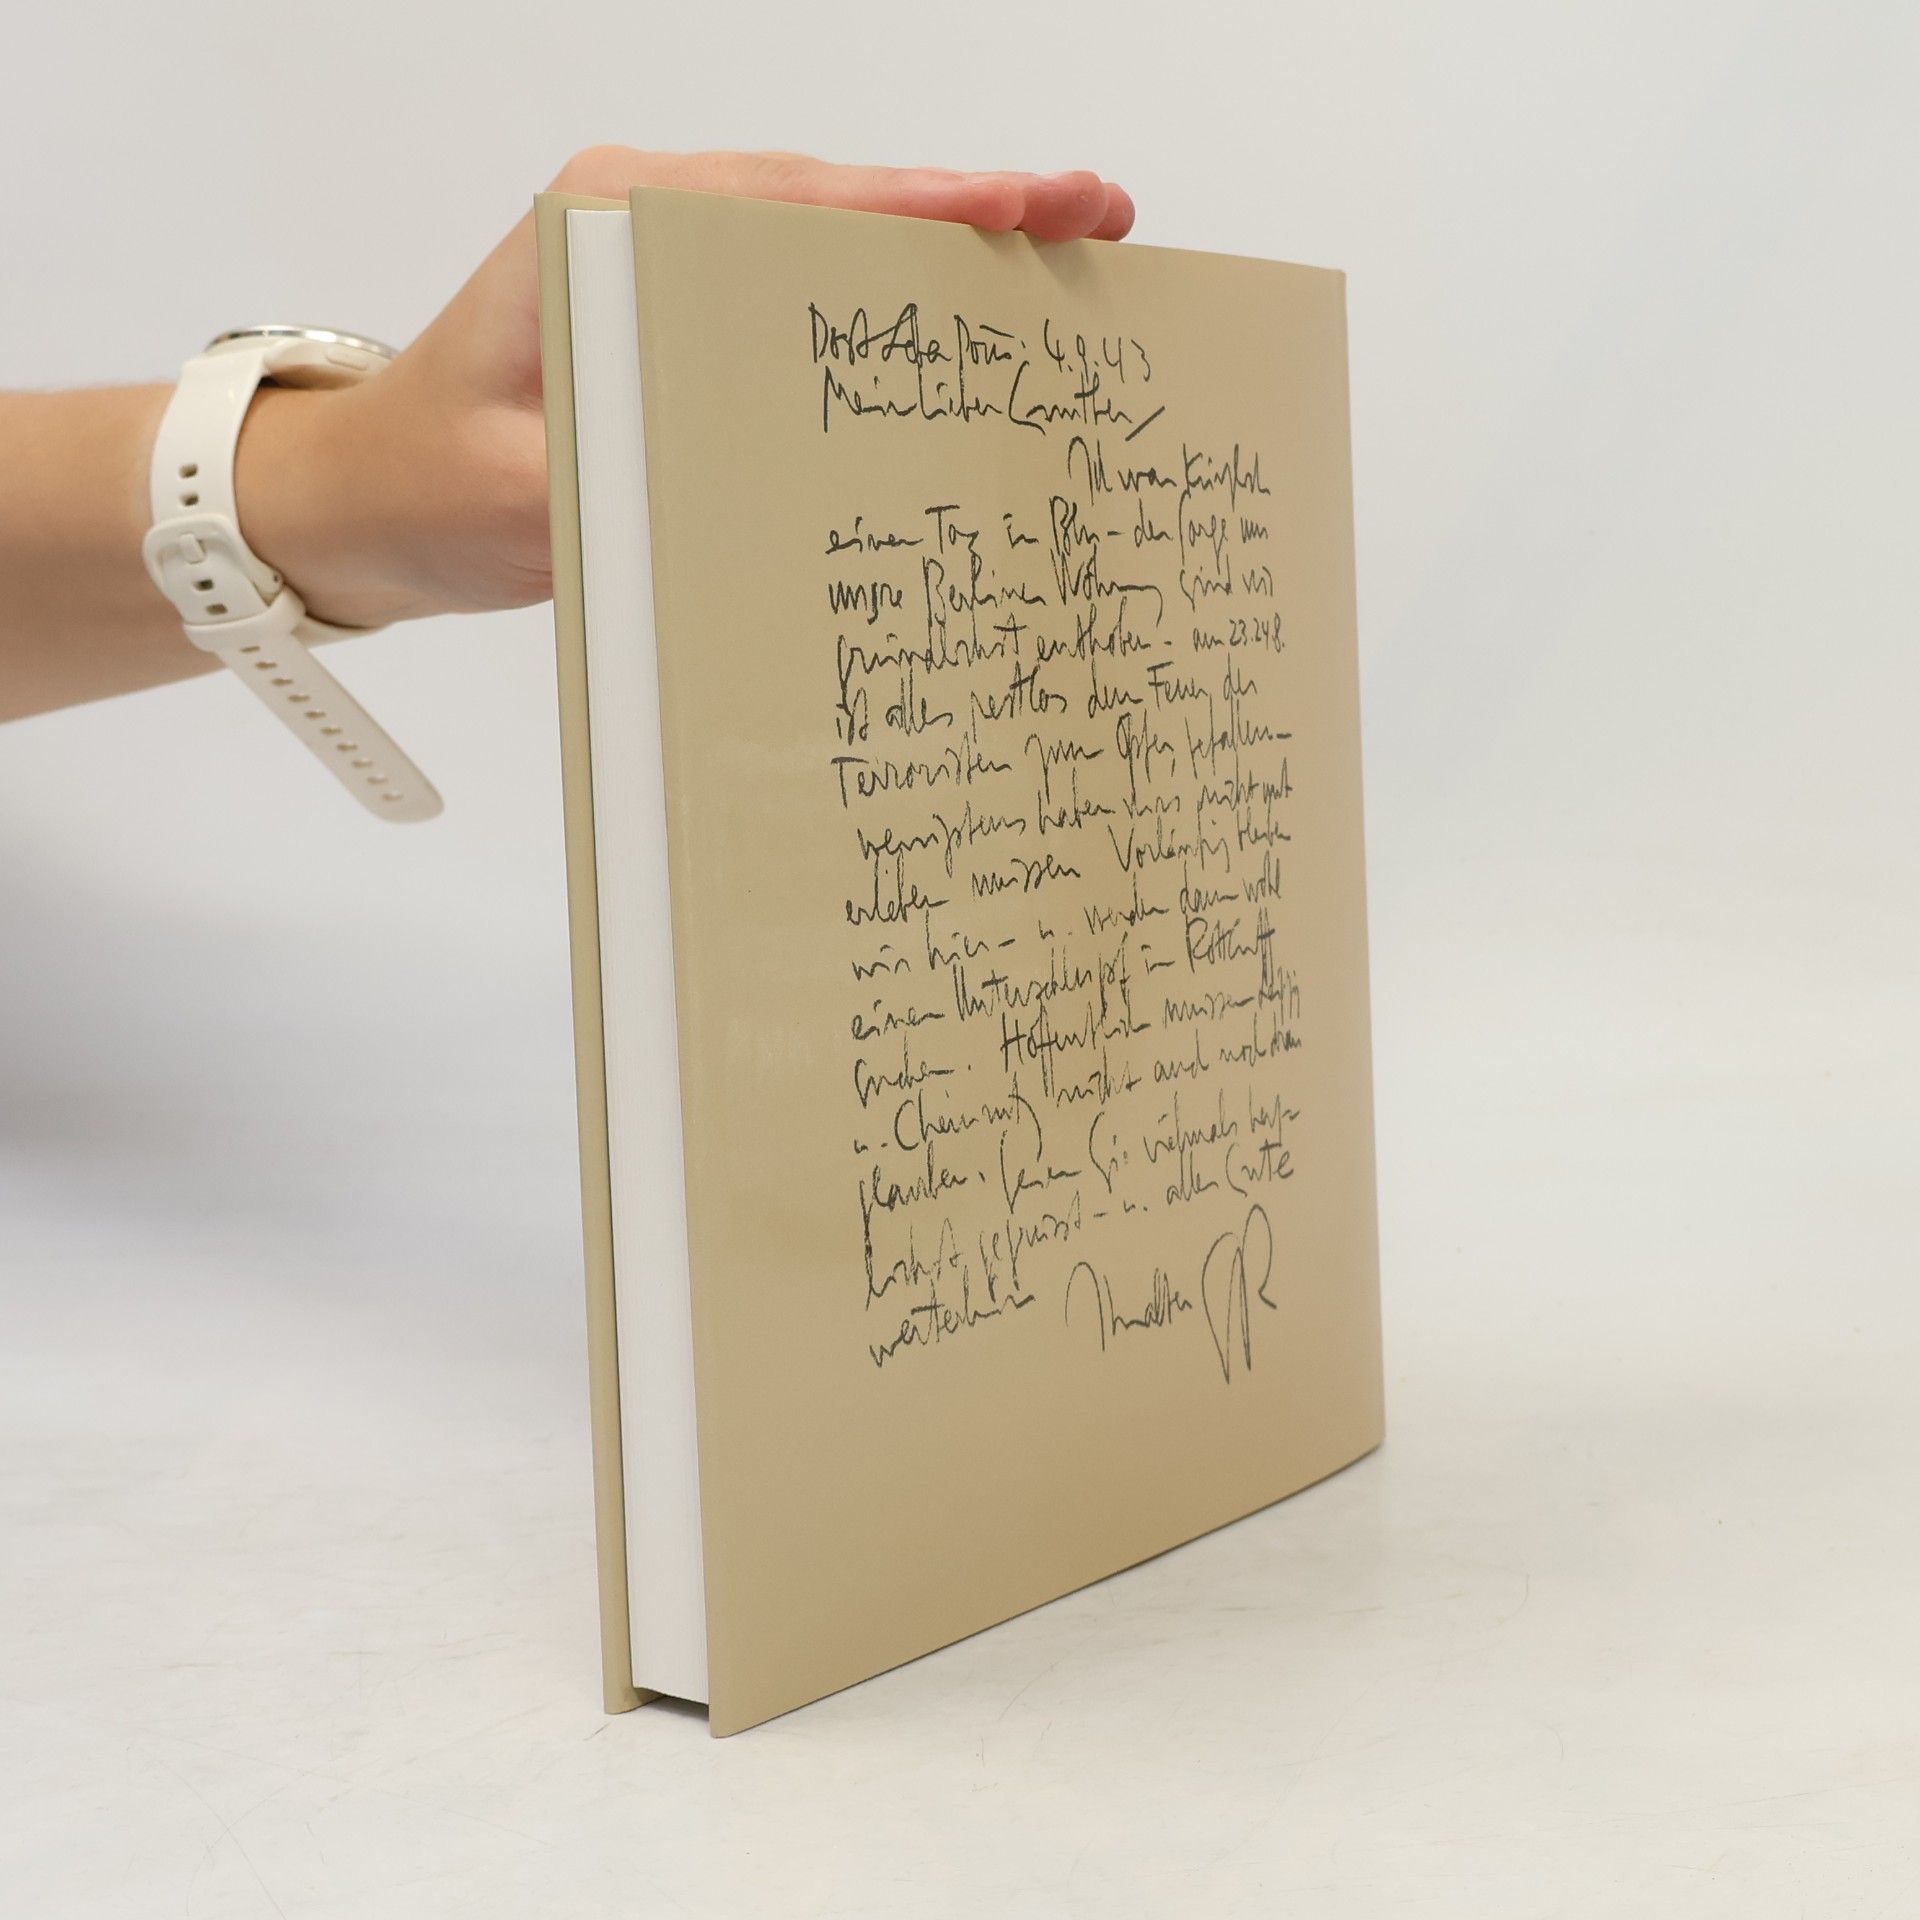 Dorf Leba Pom: 4.9.43
Mein lieber Gunther,
Ich war kürzlich
einen Tag in Bln – der Sorge um
unsre Berliner Wohnung sind wir
gründlichst enthoben – am 23.24.8.
ist alles restlos dem Feuer der
Terroristen zum Opfer gefallen –
wenigstens haben wirs nicht mit
erleben müssen Vorläufig bleiben
wir hier – u. werden dann wohl
einen Unterschlupf in Rottluff
suchen. Hoffentlich müssen Leipzig
u. Chemnitz nicht auch noch dran
glauben. Seien Sie vielmals herz-
lichst gegrüsst – u. alles Gute
weiterhin